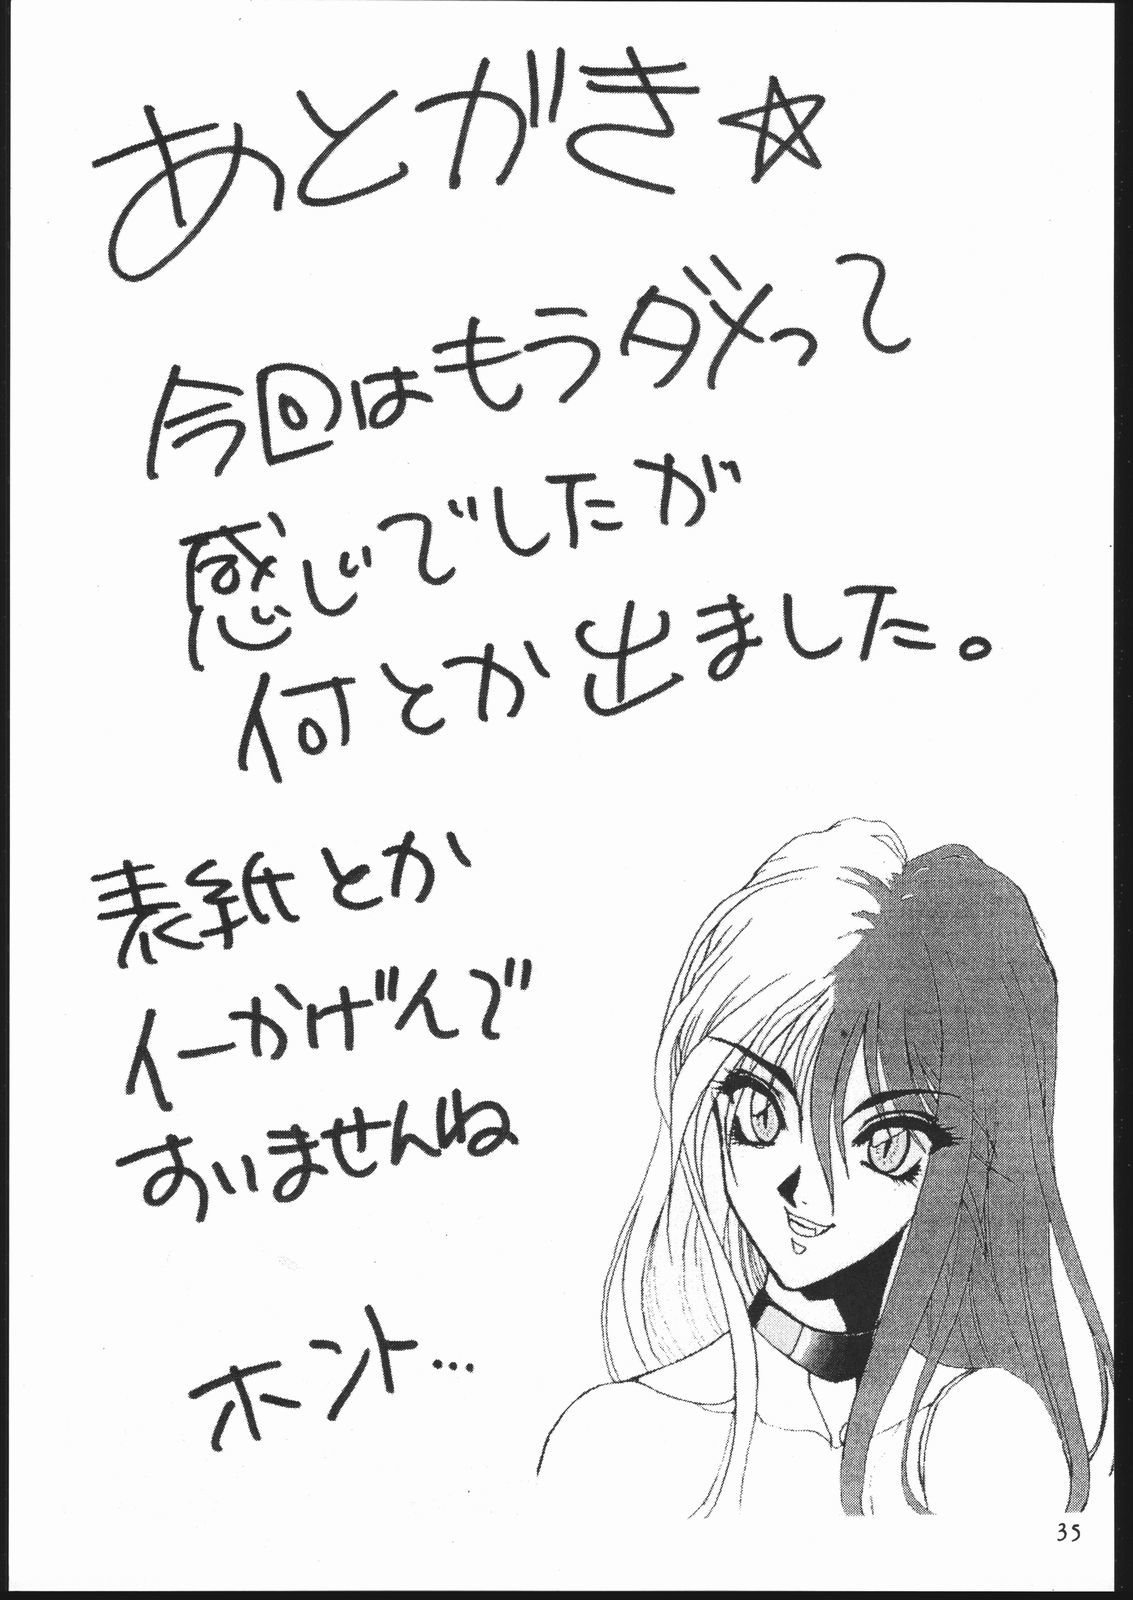 あとがき☆
今回はもうダメって
感じでしたが
何とか出ました。
表紙とか
イーかげんで
すいませんね
ホント…
35